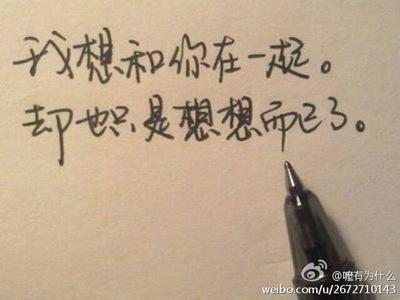 我想和你在一起。
却也只是想想而已了。
@嚒有为什么
weibo.com/u/2672710143